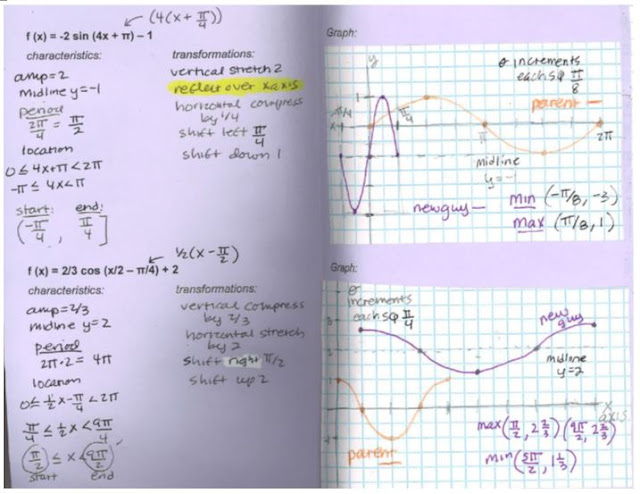 (4(x + π/4))
f (x) = -2 sin (4x + π) – 1
characteristics:
amp=2
midline y=-1
period
2π/4 = π/2
location
0≤ 4x+π <2π
-π ≤ 4x<π
start: end:
(-π/4 , π/4]
transformations:
vertical stretch 2
reflect over x axis
horizontal compress
by 1/4
shift left π/4
shift down 1
Graph:
y
θ increments
each sq π/8
parent —
1
-π/4
π/4
π
2π
midline
y=-1
newguy —
min (-π/8, -3)
max (π/8, 1)
1/2(x – π/2)
f (x) = 2/3 cos (x/2 – π/4) + 2
characteristics:
amp=2/3
midline y=2
period
2π·2 = 4π
location
0≤ 1/2x-π/4 <2π
π/4 ≤ 1/2x <9π/4
π/2 ≤ x < 9π/2
start end
transformations:
vertical compress
by 2/3
horizontal stretch
by 2
shift right π/2
shift up 2
Graph:
θ
increments
each sq π/4
new
guy
midline
y=2
x
axis
parent
max(π/2, 2 2/3) (9π/2, 2 2/3)
min(5π/2, 1 1/3)